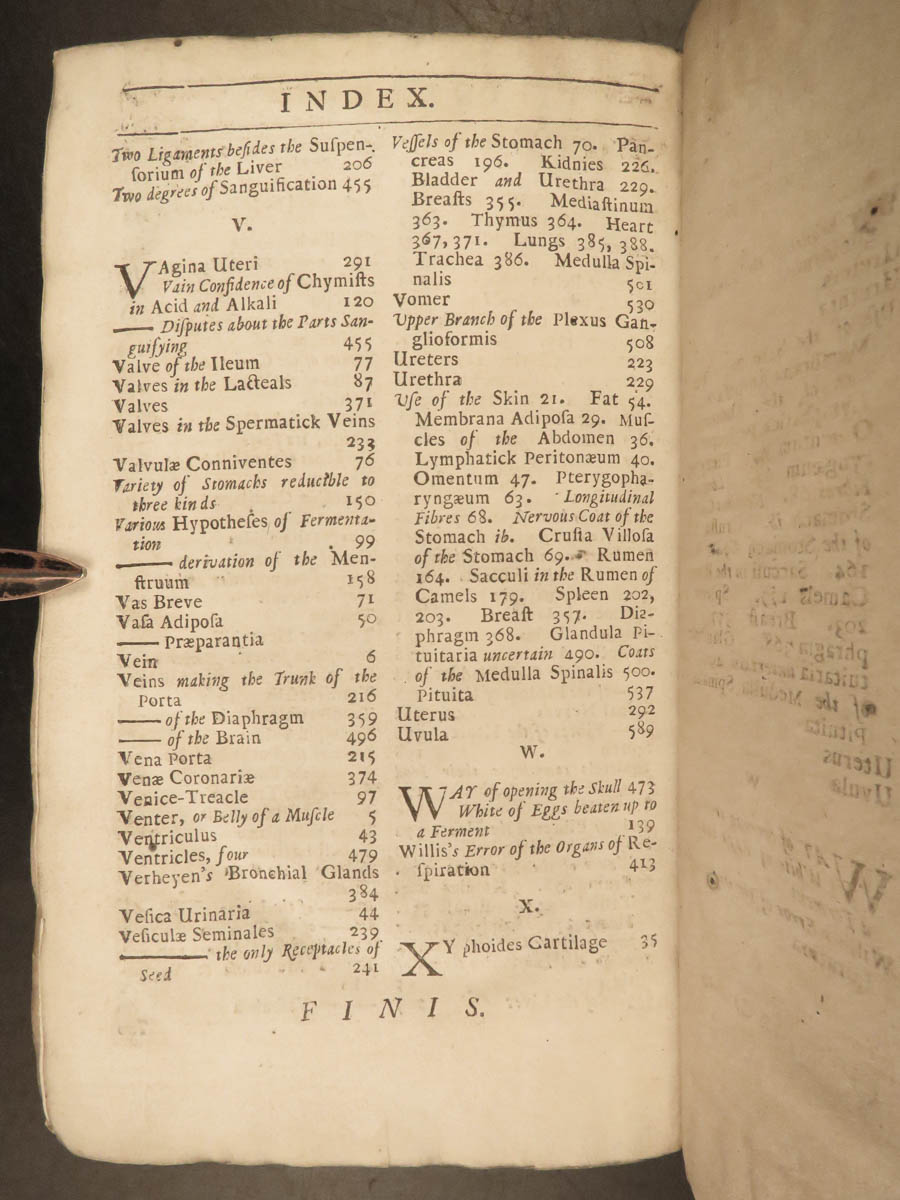 INDEX.
Two Ligaments beſides the Suſpen-
ſorium of the Liver 206
Two degrees of Sanguification 455
V.
VAgina Uteri 291
Vain Confidence of Chymiſts
in Acid and Alkali 120
—— Diſputes about the Parts San-
guifying 455
Valve of the Ileum 77
Valves in the Lacteals 87
Valves 371
Valves in the Spermatick Veins
233
Valvulæ Conniventes 76
Variety of Stomachs reducible to
three kinds 150
Various Hypotheſes of Fermenta-
tion 99
—— derivation of the Men-
ſtruum 158
Vas Breve 71
Vaſa Adipoſa 50
—— Præparantia
Vein 6
Veins making the Trunk of the
Porta 216
—— of the Diaphragm 359
—— of the Brain 496
Vena Porta 215
Venæ Coronariæ 374
Venice-Treacle 97
Venter, or Belly of a Muſcle 5
Ventriculus 43
Ventricles, four 479
Verheyen's Bronchial Glands
384
Veſica Urinaria 44
Veſiculæ Seminales 239
—— the only Receptacles of
Seed 241
Veſſels of the Stomach 70. Pan-
creas 196. Kidnies 226.
Bladder and Urethra 229.
Breaſts 355. Mediaſtinum
363. Thymus 364. Heart
367, 371. Lungs 385, 388.
Trachea 386. Medulla Spi-
nalis 501
Vomer 530
Upper Branch of the Plexus Gan-
glioformis 508
Ureters 223
Urethra 229
Uſe of the Skin 21. Fat 54.
Membrana Adipoſa 29. Muſ-
cles of the Abdomen 36.
Lymphatick Peritonæum 40.
Omentum 47. Pterygopha-
ryngæum 63. Longitudinal
Fibres 68. Nervous Coat of the
Stomach ib. Cruſta Villoſa
of the Stomach 69. Rumen
164. Sacculi in the Rumen of
Camels 179. Spleen 202,
203. Breaſt 357. Dia-
phragm 368. Glandula Pi-
tuitaria uncertain 490. Coats
of the Medulla Spinalis 500.
Pituita 537
Uterus 292
Uvula 589
W.
WAY of opening the Skull 473
White of Eggs beaten up to
a Ferment 139
Willis's Error of the Organs of Re-
ſpiration 413
X.
XYphoides Cartilage 35
FINIS.